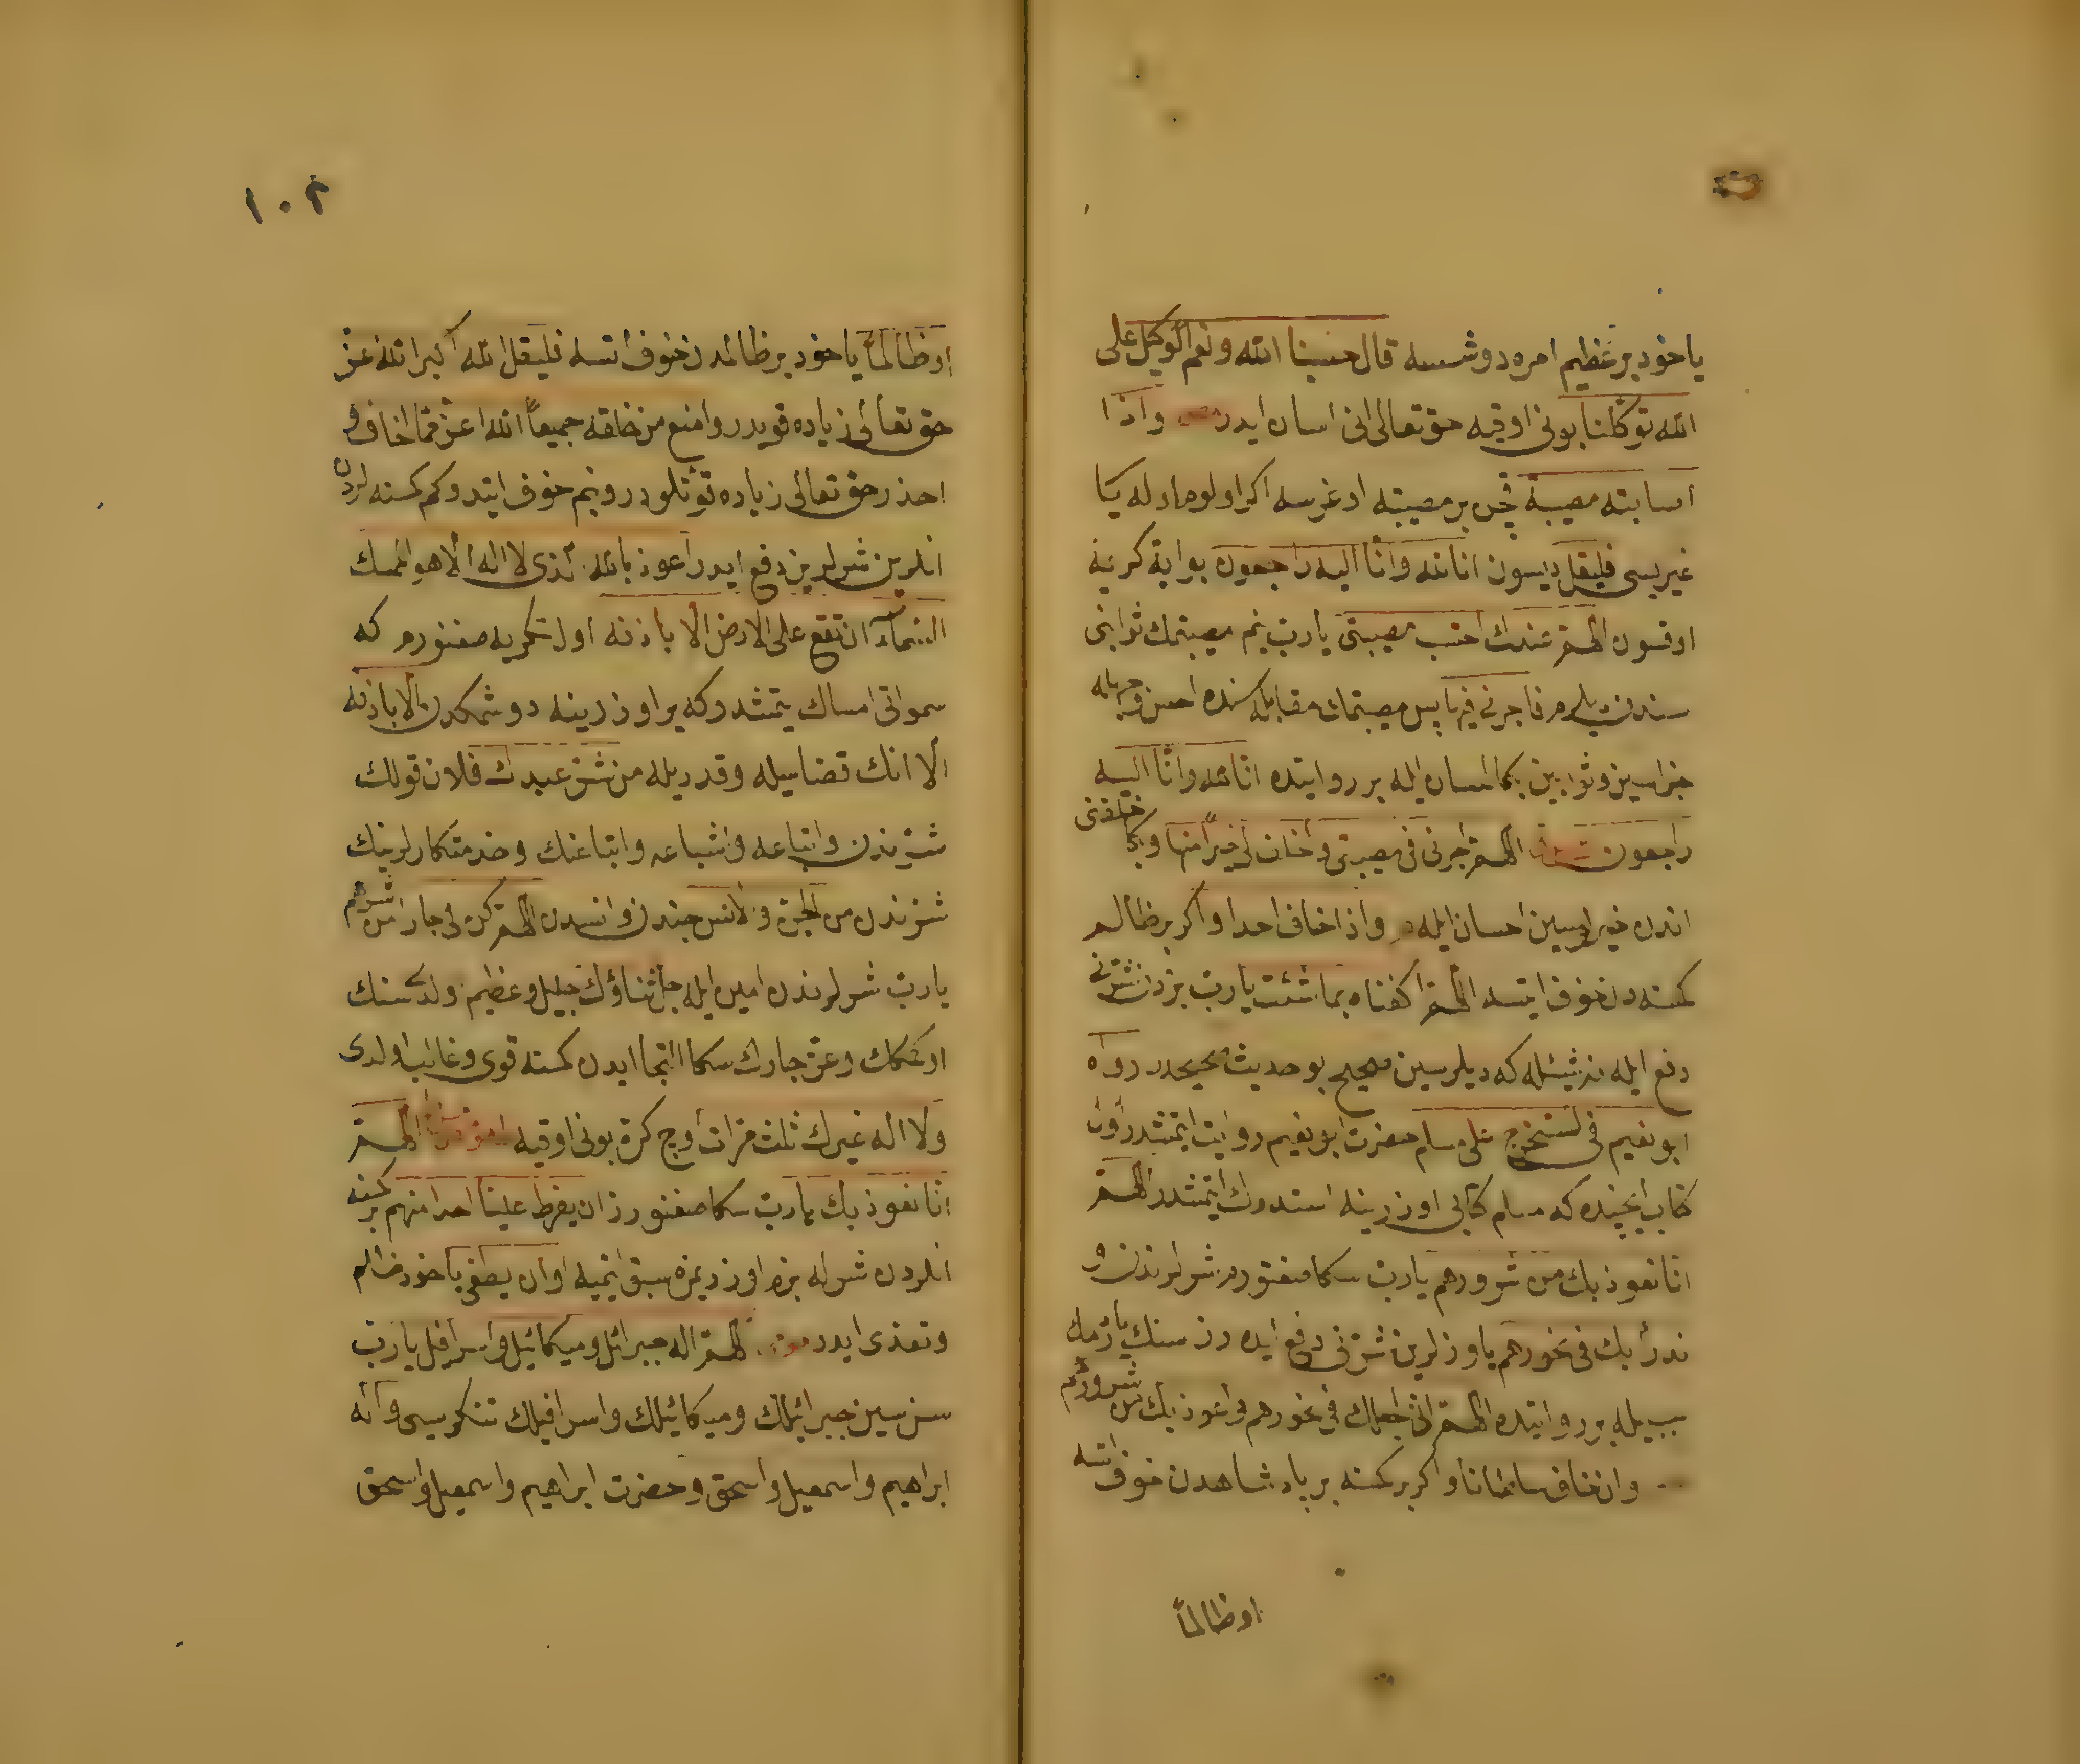 ياخود بر عظيم امره دوشسه قال حسبنا الله ونعم الوكيل على
الله توكلنا بونى اوقيه حق تعالى انى اسان ايدر واذا
اصابته مصيبة قچن بر مصيبته اوغرسه اكر اولوم اوله يا
غيريسى فليقل ديسون انا لله وانا اليه راجعون بو اية كريمه
اوقسون اللهم عندك احتسب مصيبتى يا رب بنم مصيبتمك ثوابنى
سندن ديلرم فاجرنى فيها پس مصيبتمك مقابله سنده احسن وجهله
جزاسين وثوابين بكا احسان ايله بر روايتده انا لله وانا اليه
راجعون اللهم اجرنى فى مصيبتى واخلف لى خيرا منها وبكا خلفنى
اندن خيراسين احسان ايله واذا خاف احدا واكر بر ظالم
كمسنه دن خوف ايتسه اللهم اكفناه بما شئت يا رب بزدن شرنى
دفع ايله نه شيئله كه ديلرسين صحيح بو حديث صحيحدر رواه
ابو نعيم فى المستخرج على مسلم حضرت ابو نعيم روايت ايتمشدر اول
كتاب ايچنده كه مسلم كتابى اوزرينه استدراك ايتمشدر اللهم
انا نعوذ بك من شرورهم يا رب سكا صغنورم شرلرندن و
ندرأ بك فى نحورهم ياوزلرين شرنى دفع ايده رز سنك ياردمك
سببيله بر روايتده اللهم انى اجعلك فى نحورهم واعوذ بك من شرورهم
وان خاف سلطانا واكر بر كمسنه بر پادشاهدن خوف ايتسه
اوظالما
١٠٢
اوظالما ياخود بر ظالمدن خوف ايتسه فليقل الله اكبر الله اعز
حق تعالى زياده قويدر وامنع من خلقه جميعا الله اعز مما اخاف و
احذر حق تعالى زياده قوتلودر وبنم خوف ايتدوكم كمسنه لردن
انلرين شرلرين دفع ايدر اعوذ بالله الذى لا اله الا هو الممسك
السماء ان تقع على الارض الا باذنه اول تكريه صغنورم كه
سمواتى امساك يتمشدر كه ير اوزرينه دوشمكدن الا باذنه
الا انك قضاسيله وقدريله من شر عبدك فلان قولك
شرندن واتباعه واشياعه واتباعنك وخدمتكارلرينك
شرندن من الجن والانس جندن وانسدن اللهم كن لى جارا من شرهم
يا رب شرلرندن امين ايله جل ثناؤك جليل وعظيم اولدى سنك
اوكمكك وعز جارك سكا التجا ايدن كمسنه قوى وغالب اولدى
ولا اله غيرك ثلث مرات اوچ كره بونى اوقيه اللهم
انا نعوذ بك يا رب سكا صغنورز ان يفرط علينا احد منهم بر كمسنه
انلردن شرله بزم اوزريمزه سبق ايتميه او ان يطغى ياخود ظلم
وتعدى ايدر اللهم اله جبرائل وميكائيل واسرافيل يا رب
سن سين جبرائيلك وميكائيلك واسرافيلك تنكريسى واله
ابراهيم واسمعيل واسحق وحضرت ابراهيم واسمعيل واسحق